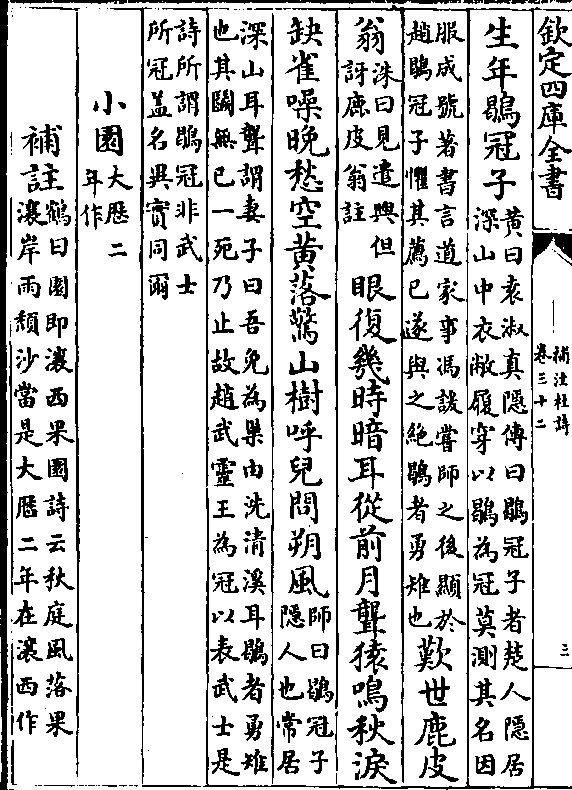 欽定四庫全書
補注杜詩
卷三十二
三
生年鶡冠子
黄曰袁淑真隱傳曰鶡冠子者楚人隱居
深山中衣敝履穿以鶡為冠莫測其名因
服成號著書言道家事馮諼嘗師之後顯於
趙鶡冠子懼其薦已遂與之絶鶡者勇雉也
歎世鹿皮
翁
洙曰見遣興但
訝鹿皮翁註
眼復幾時暗耳從前月聾猿鳴秋淚
缺雀噪晚愁空黄落驚山樹呼兒問朔風
師曰鶡冠子
隱人也常居
深山耳聾謂妻子曰吾免為巢由洗清溪耳鶡者勇雉
也其鬭無已一死乃止故趙武靈王為冠以表武士是
詩所謂鶡冠非武士
所冠葢名異實同爾
小園
大厯二
年作
補註
鶴曰園即瀼西果園詩云秋庭風落果
瀼岸雨頽沙當是大厯二年在瀼西作